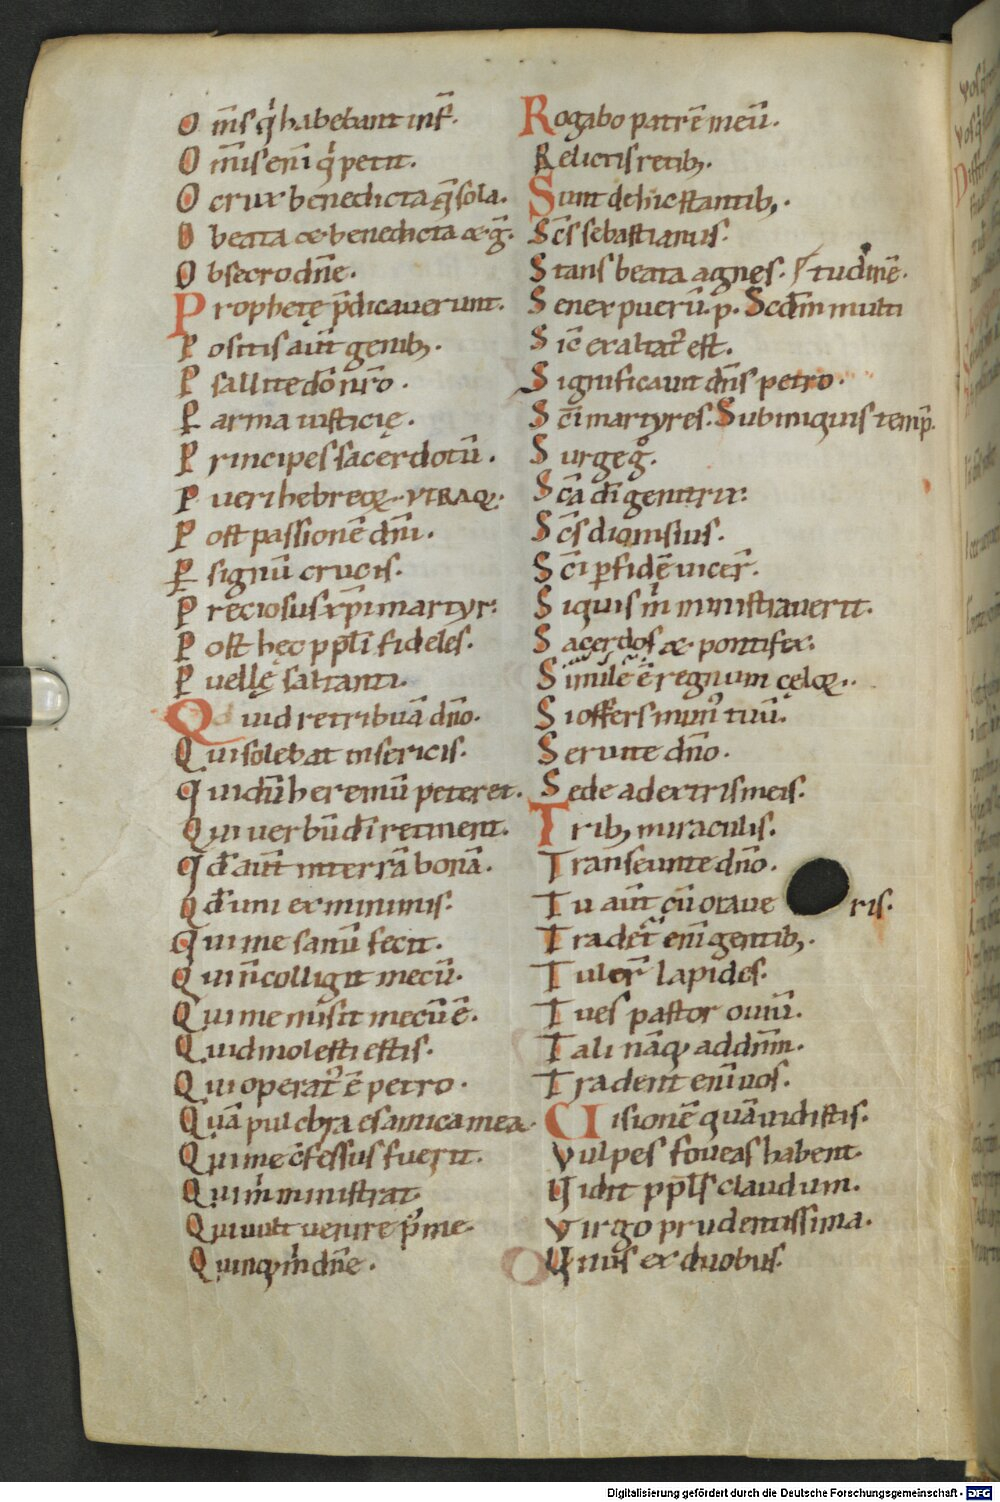 Om̅s q̍ habebant inf̅.
Om̅is eni̅ q̍ petit.
O crux benedicta q̅ sola.
O beata & benedicta & g̅.
Obsecro dn̅e.
Prophetę p̅dicauerunt.
Positis aut̅ genib;.
Psallite dō nr̅o.
P arma iusticię.
Principes sacerdotū.
Pueri hebreoꝝ. VTRAQ;.
Post passionē dn̅i.
P signū crucis.
Preciosus xp̅i martyr.
Post hęc pp̅li fideles.
Puellę saltanti.
Quid retribuā dn̅o.
Qui solebat in sericis.
Qui dū heremū peteret.
Qui uerbū di̅ retinent.
Qd̅ aut̅ in terrā bonā.
Qd̅ uni ex minimis.
Qui me sanū fecit.
Qui n̅ colligit mecū.
Qui me misit mecū ē.
Quid molesti estis.
Qui operat᷒ ē petro.
Quā pulchra es amica mea.
Qui me c̅fessus fuerit.
Qui m̍ ministrat.
Qui uult uenire p᷒ me.
Quinq; m̍ dn̅e.
Rogabo patrē meū.
Relictis retib;.
Sunt de hic stantib;.
Sc̅s sebastianus.
Stans beata agnes. Stud mē.
Senex puerū. p. Scd̅m multi
Sic̅ exaltat᷒ est.
Significauit dn̅s petro.
Sc̅i martyres. Sub iniquis temp̅.
Surge g̊.
Sc̅a di̅ genitrix.
Sc̅s dionisius.
Sc̅i ꝑ fidē uicer̅.
Siquis m̍ ministrauerit.
Sacerdos & pontifex.
Simile ē regnum cęloꝝ.
Si offers mun᷒ tuū.
Seruite dn̅o.
Sede a dextris meis.
Trib; miraculis.
Transeunte dn̅o.
Tu aut̅ cū oraue ris.
Tradet᷒ eni̅ gentib;.
Tuler̅ lapides.
Tu es pastor ouiū.
Tali nāq; ad dn̅m.
Tradent eni̅ uos.
Uisionē quā uidistis.
Vulpes foueas habent.
Uidit pp̅ls claudum.
Virgo prudentissima.
Unus ex duobus.
Digitalisierung gefördert durch die Deutsche Forschungsgemeinschaft - DFG